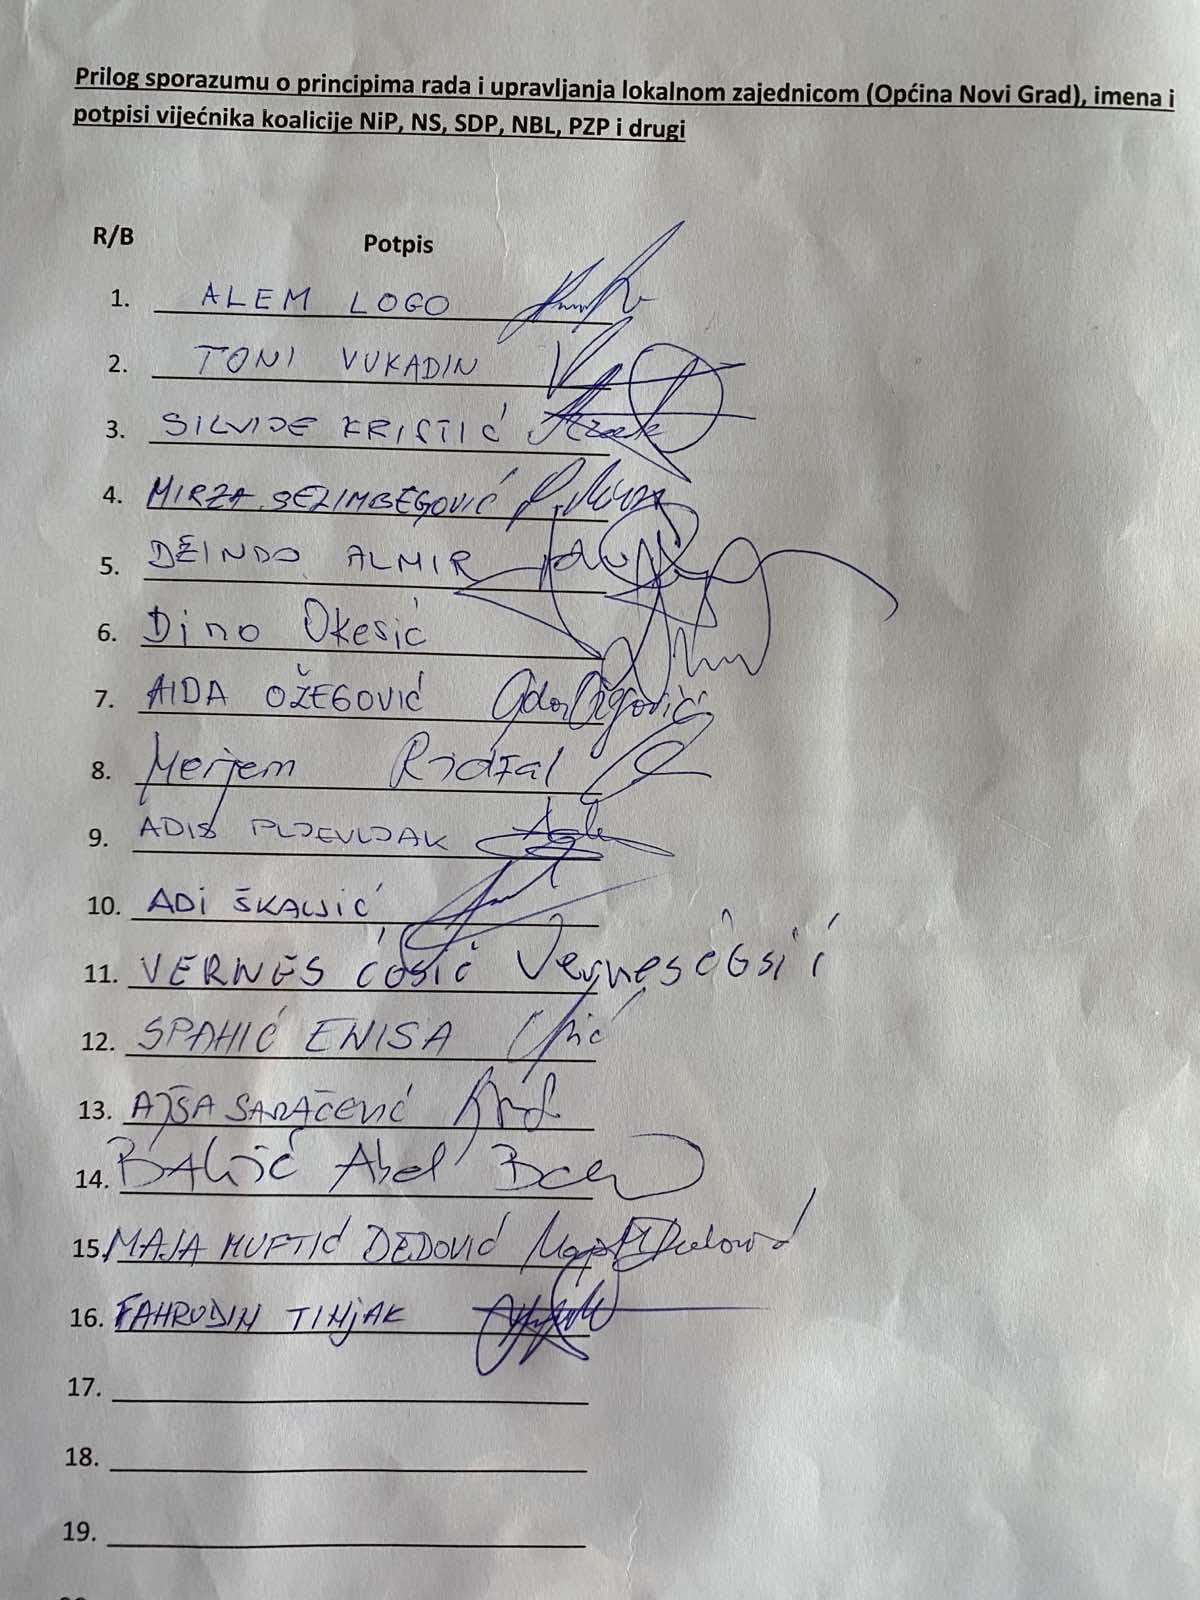 Prilog sporazumu o principima rada i upravljanja lokalnom zajednicom (Općina Novi Grad), imena i
potpisi vijećnika koalicije NiP, NS, SDP, NBL, PZP i drugi
R/B Potpis
1. ALEM LOGO
2. TONI VUKADIN
3. SILVIJE KRISTIĆ
4. MIRZA SELIMBEGOVIĆ
5. DŽINDO ALMIR
6. Dino Okesić
7. AIDA OŽEGOVIĆ
8. Merjem Ridžal
9. ADIS PLJEVLJAK
10. ADI ŠKALJIĆ
11. VERNES ĆOSIĆ Vernes Ćosić
12. SPAHIĆ ENISA
13. AJŠA SARAČEVIĆ
14. BALIĆ Abel
15. MAJA MUFTIĆ DEDOVIĆ
16. FAHRUDIN TINJAK
17.
18.
19.